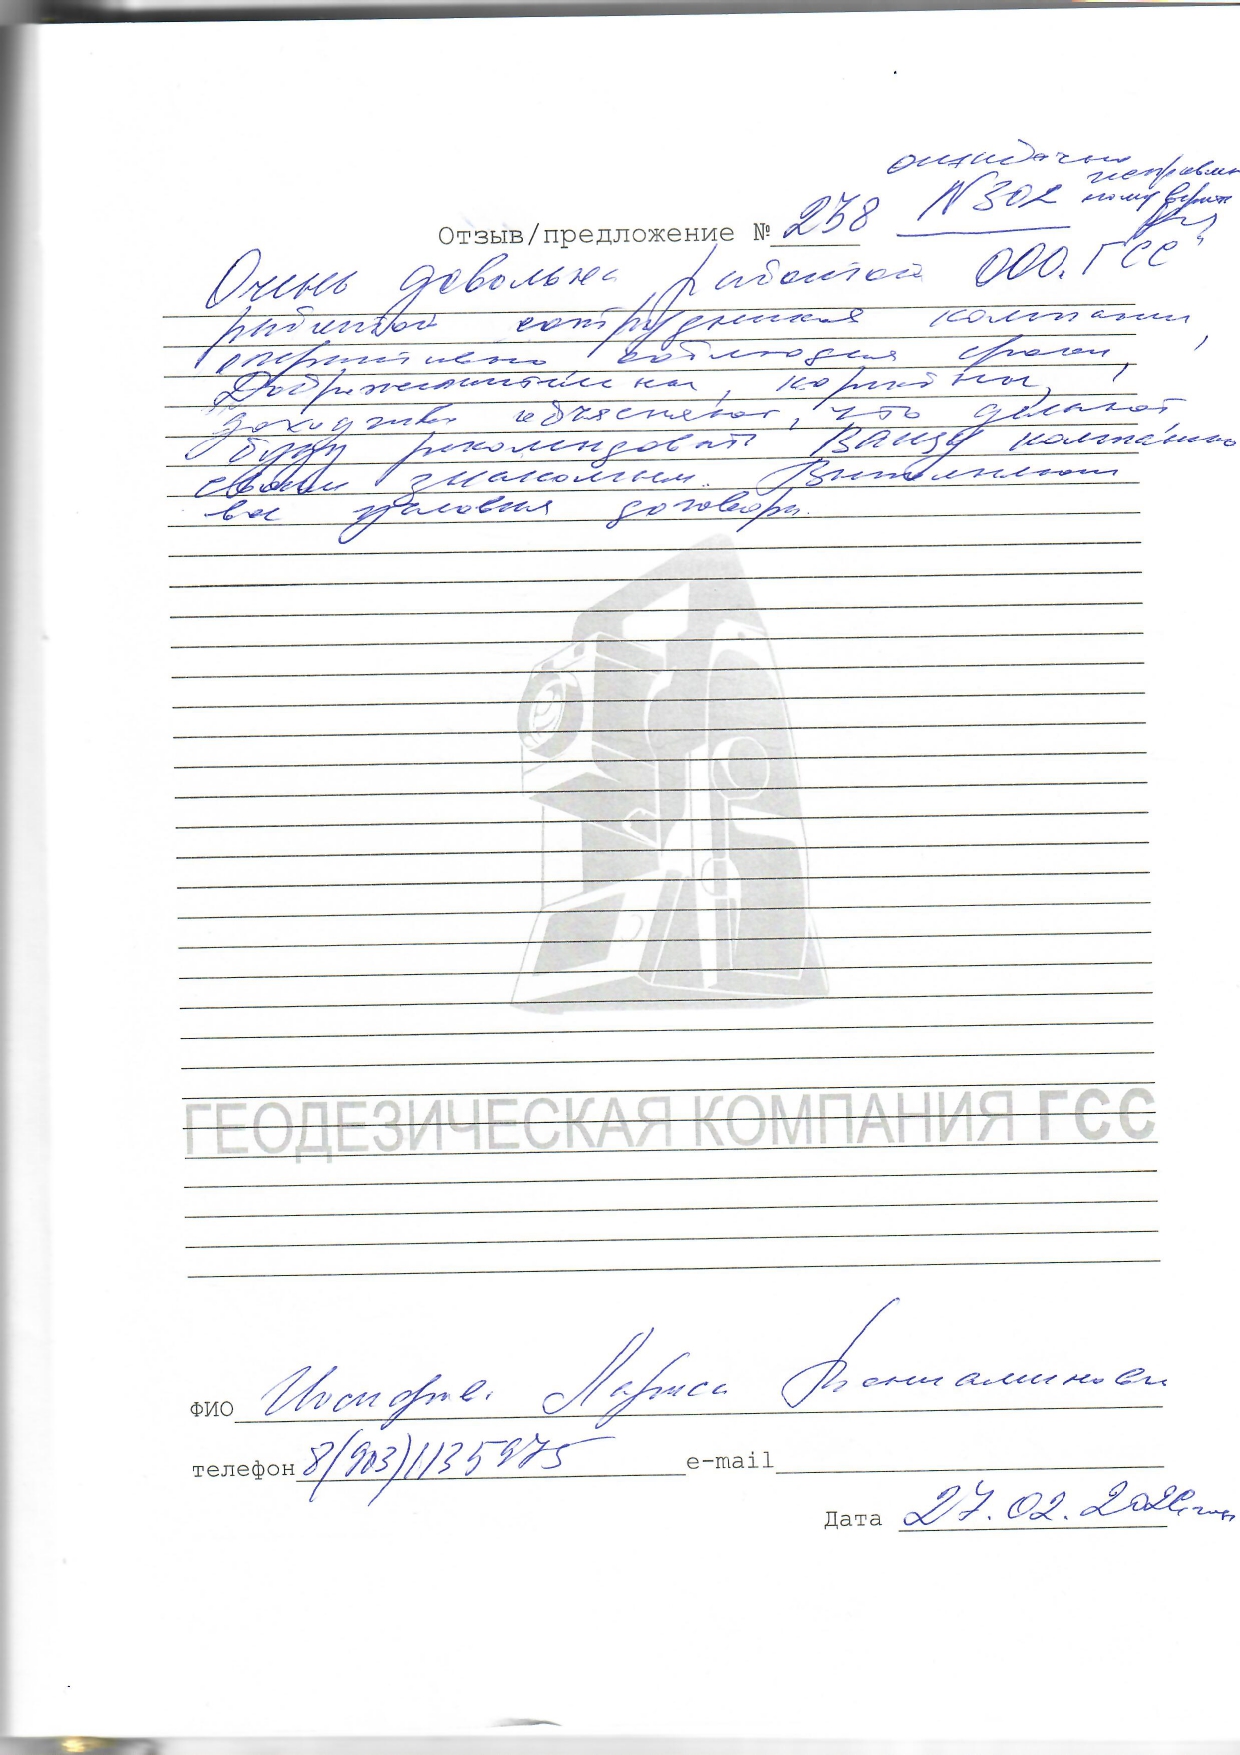 ошибочно
исправлен
N 302 номер верить
Отзыв/предложение № 238
Очень довольна работой ООО "ГСС"
работой сотрудников компании,
оперативно соблюдая сроки,
Доброжелательны, корректны,
доходчиво объясняют, что делают
буду рекомендовать Вашу компанию
своим знакомым. Выполняют
все условия договора.
ГЕОДЕЗИЧЕСКАЯ КОМПАНИЯ ГСС
ФИО Лариса Вениаминовна
телефон 8(903)1135975 e-mail
Дата 27.02.202